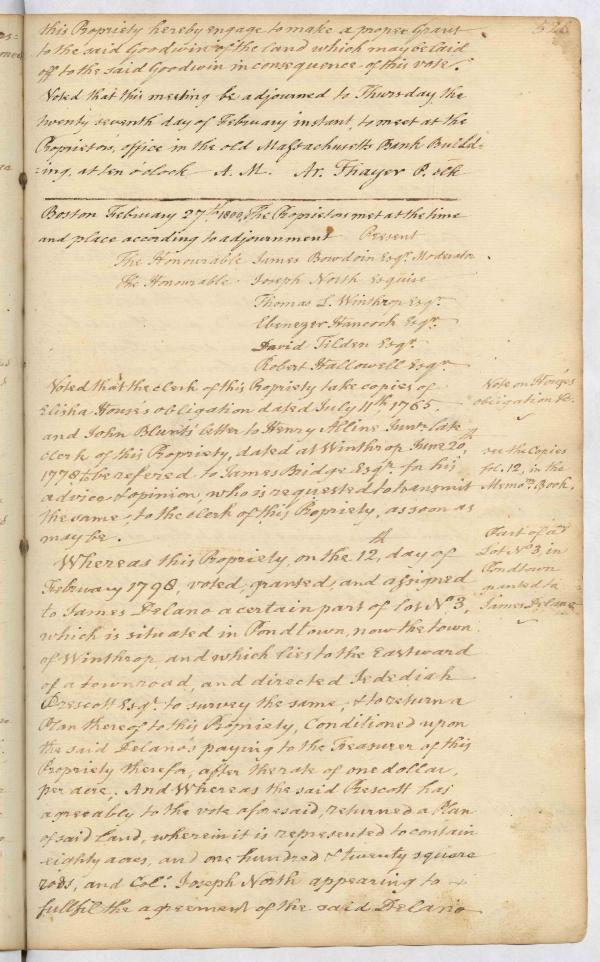 this Propriety hereby engage to make a proper Grant
to the said Goodwin of the land which may be laid
off to the said Goodwin in consequence of this vote.
Voted that this meeting be adjourned to Thursday the
twenty seventh day of February instant, to meet at the
Proprietors office in the old Massachusetts Bank Build-
-ing, at ten o'clock A. M. Ar. Thayer P. clk
Boston February 27th 1800, The Proprietors met at the time
and place according to adjournment Present
The Honourable James Bowdoin Esqr. Moderator
the Honourable Joseph North Esquire
Thomas L. Winthrop Esqr.
Ebenezer Hancock Esqr.
David Tilden Esqr.
Robert Hallowell Esqr.
Voted that the clerk of this Propriety take copies of
Elisha House's obligation dated July 11th 1765,
and John Blunts' letter to Henry Alline Junr. late
clerk of this Propriety, dated at Winthrop June 20th,
1778 to be refered to James Bridge Esqr. for his
advice & opinion, who is requested to transmit
the same, to the clerk of this Propriety, as soon as
may be.
Vote on House's
obligation &c.
see the Copies
fol. 12, in the
Memom. Book.
Whereas this Propriety, on the 12th, day of
February 1798, voted, granted, and assigned
to James Delano a certain part of lot No. 3,
which is situated in Pondtown, now the town
of Winthrop, and which lies to the Eastward
of a town road, and directed Jedediah
Prescott Esqr. to survey the same, & to return a
Plan thereof to this Propriety, Conditioned upon
the said Delano's paying to the Treasurer of this
Propriety therefor, after the rate of one dollar,
per acre; And Whereas the said Prescott has
agreeably to the vote aforesaid, returned a Plan
of said Land, wherein it is represented to contain
eighty acres, and one hundred & twenty square
rods, and Colo. Joseph North appearing to
fullfil the agreement of the said Delano
Part of a
Lot No. 3, in
Pondtown
granted to
James Delano